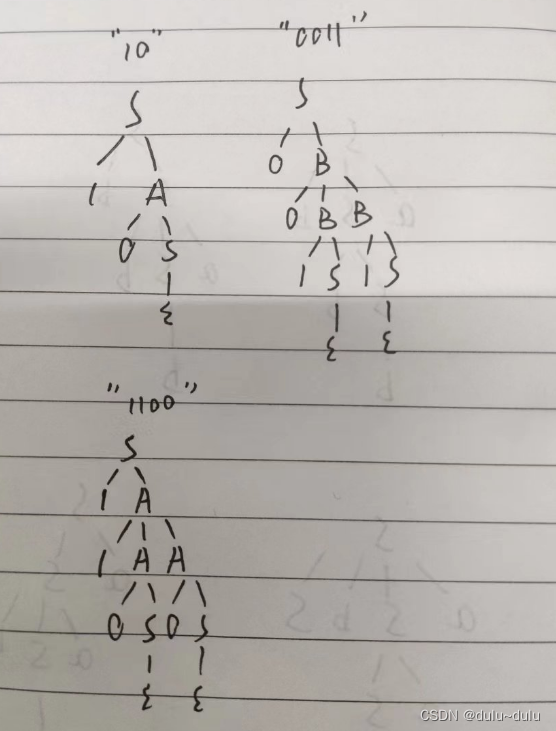 "10" "0011"
S S
1 A 0 B
0 S 0 B B
ε 1 S 1 S
ε ε
"1100"
S
1 A
1 A A
0 S 0 S
ε ε
CSDN @dulu~dulu